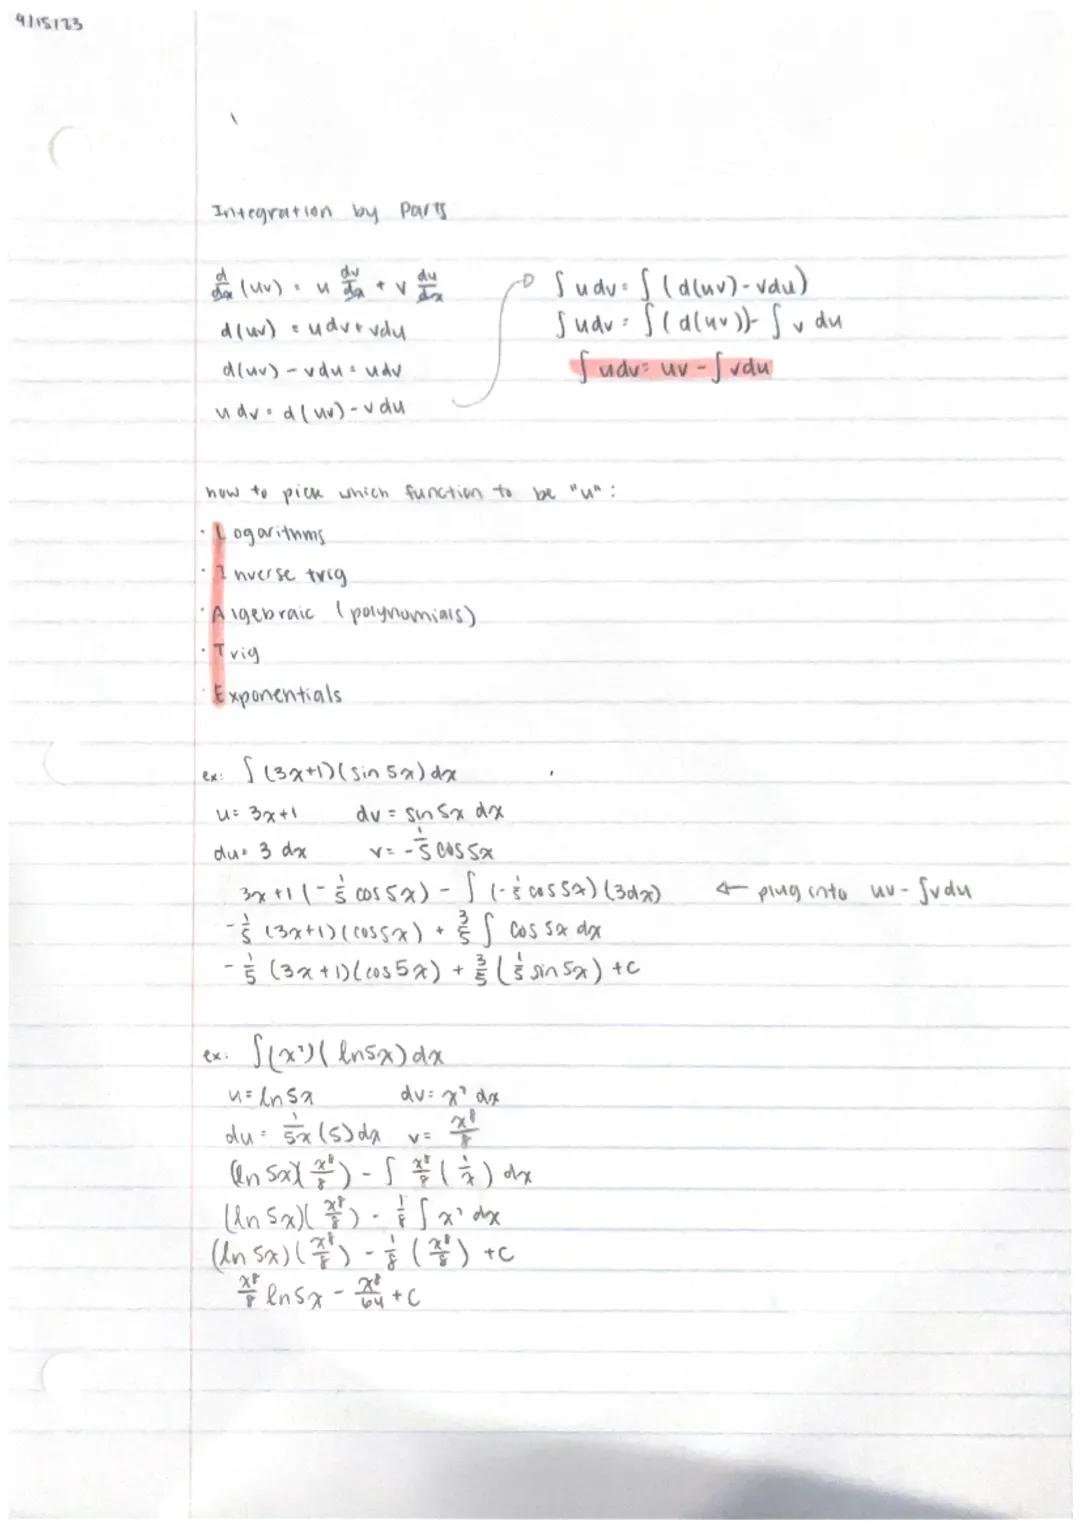 9/15/23
Integration by Parts
d/dx (uv) = u dv/dx + v du/dx
d(uv) = udv + vdu
d(uv) - vdu = udv
u dv = d(uv) - v du
∫ u dv = ∫ (d(uv) - vdu)
∫ udv = ∫ (d(uv)) - ∫ v du
∫ udv = uv - ∫ vdu
how to pick which function to be "u":
· Logarithms
· Inverse trig
· Algebraic (polynomials)
· Trig
· Exponentials
ex: ∫ (3x+1)(sin 5x) dx
u = 3x+1 dv = sin 5x dx
du = 3 dx v = -1/5 cos 5x
3x+1 (-1/5 cos 5x) - ∫ (-1/5 cos 5x)(3dx) ← plug into uv - ∫vdu
-1/5 (3x+1)(cos5x) + 3/5 ∫ cos 5x dx
-1/5 (3x+1)(cos 5x) + 3/5 (1/5 sin 5x) + C
ex: ∫(x⁷)(ln5x)dx
u = ln 5x dv = x⁷ dx
du = 1/5x (5) dx v = x⁸/8
(ln 5x)(x⁸/8) - ∫ x⁸/8 (1/x) dx
(ln 5x)(x⁸/8) - 1/8 ∫ x⁷ dx
(ln 5x)(x⁸/8) - 1/8 (x⁸/8) + C
x⁸/8 ln5x - x⁸/64 + C